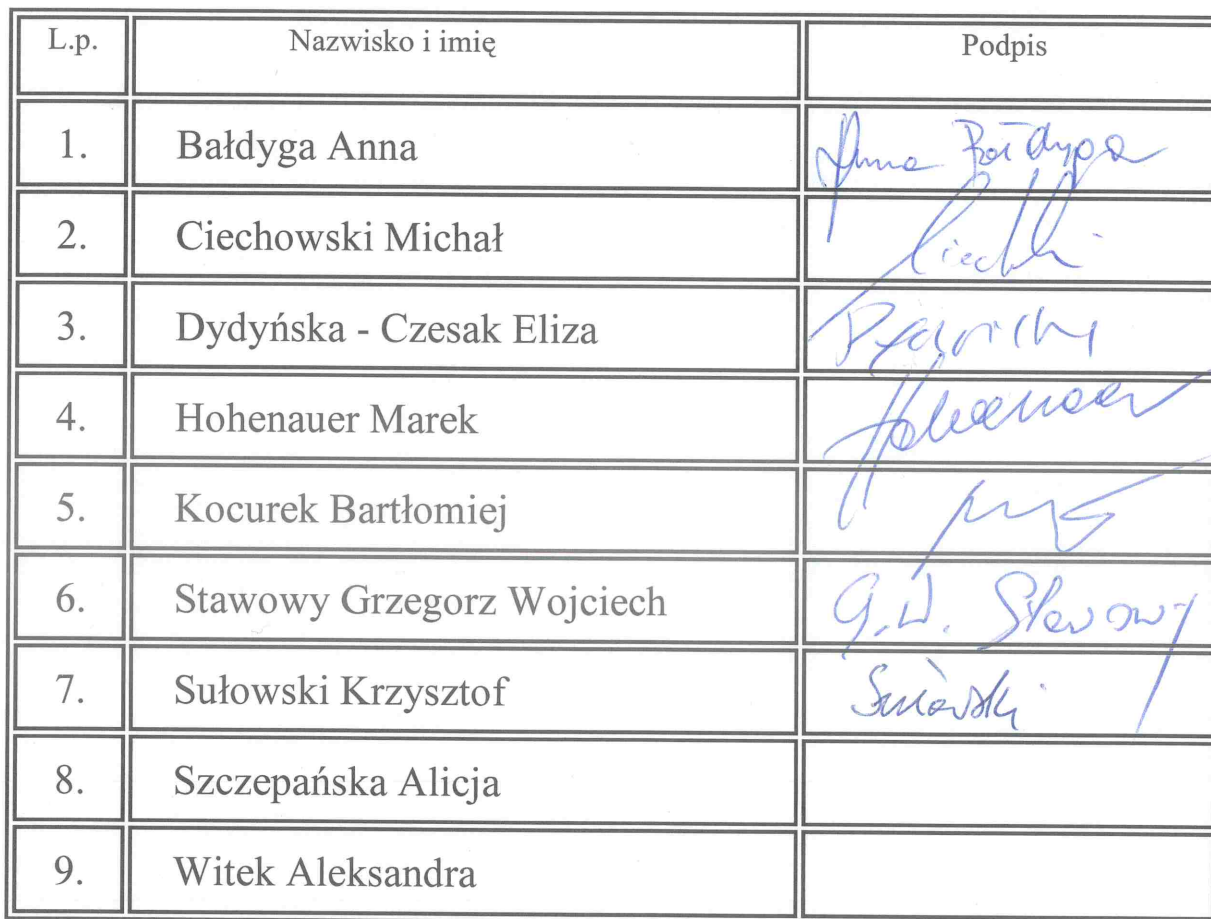 L.p. Nazwisko i imię Podpis
1. Bałdyga Anna Anna Bałdyga
2. Ciechowski Michał
3. Dydyńska - Czesak Eliza
4. Hohenauer Marek Hohenauer
5. Kocurek Bartłomiej
6. Stawowy Grzegorz Wojciech G.W. Stawowy
7. Sułowski Krzysztof Sułowski
8. Szczepańska Alicja
9. Witek Aleksandra